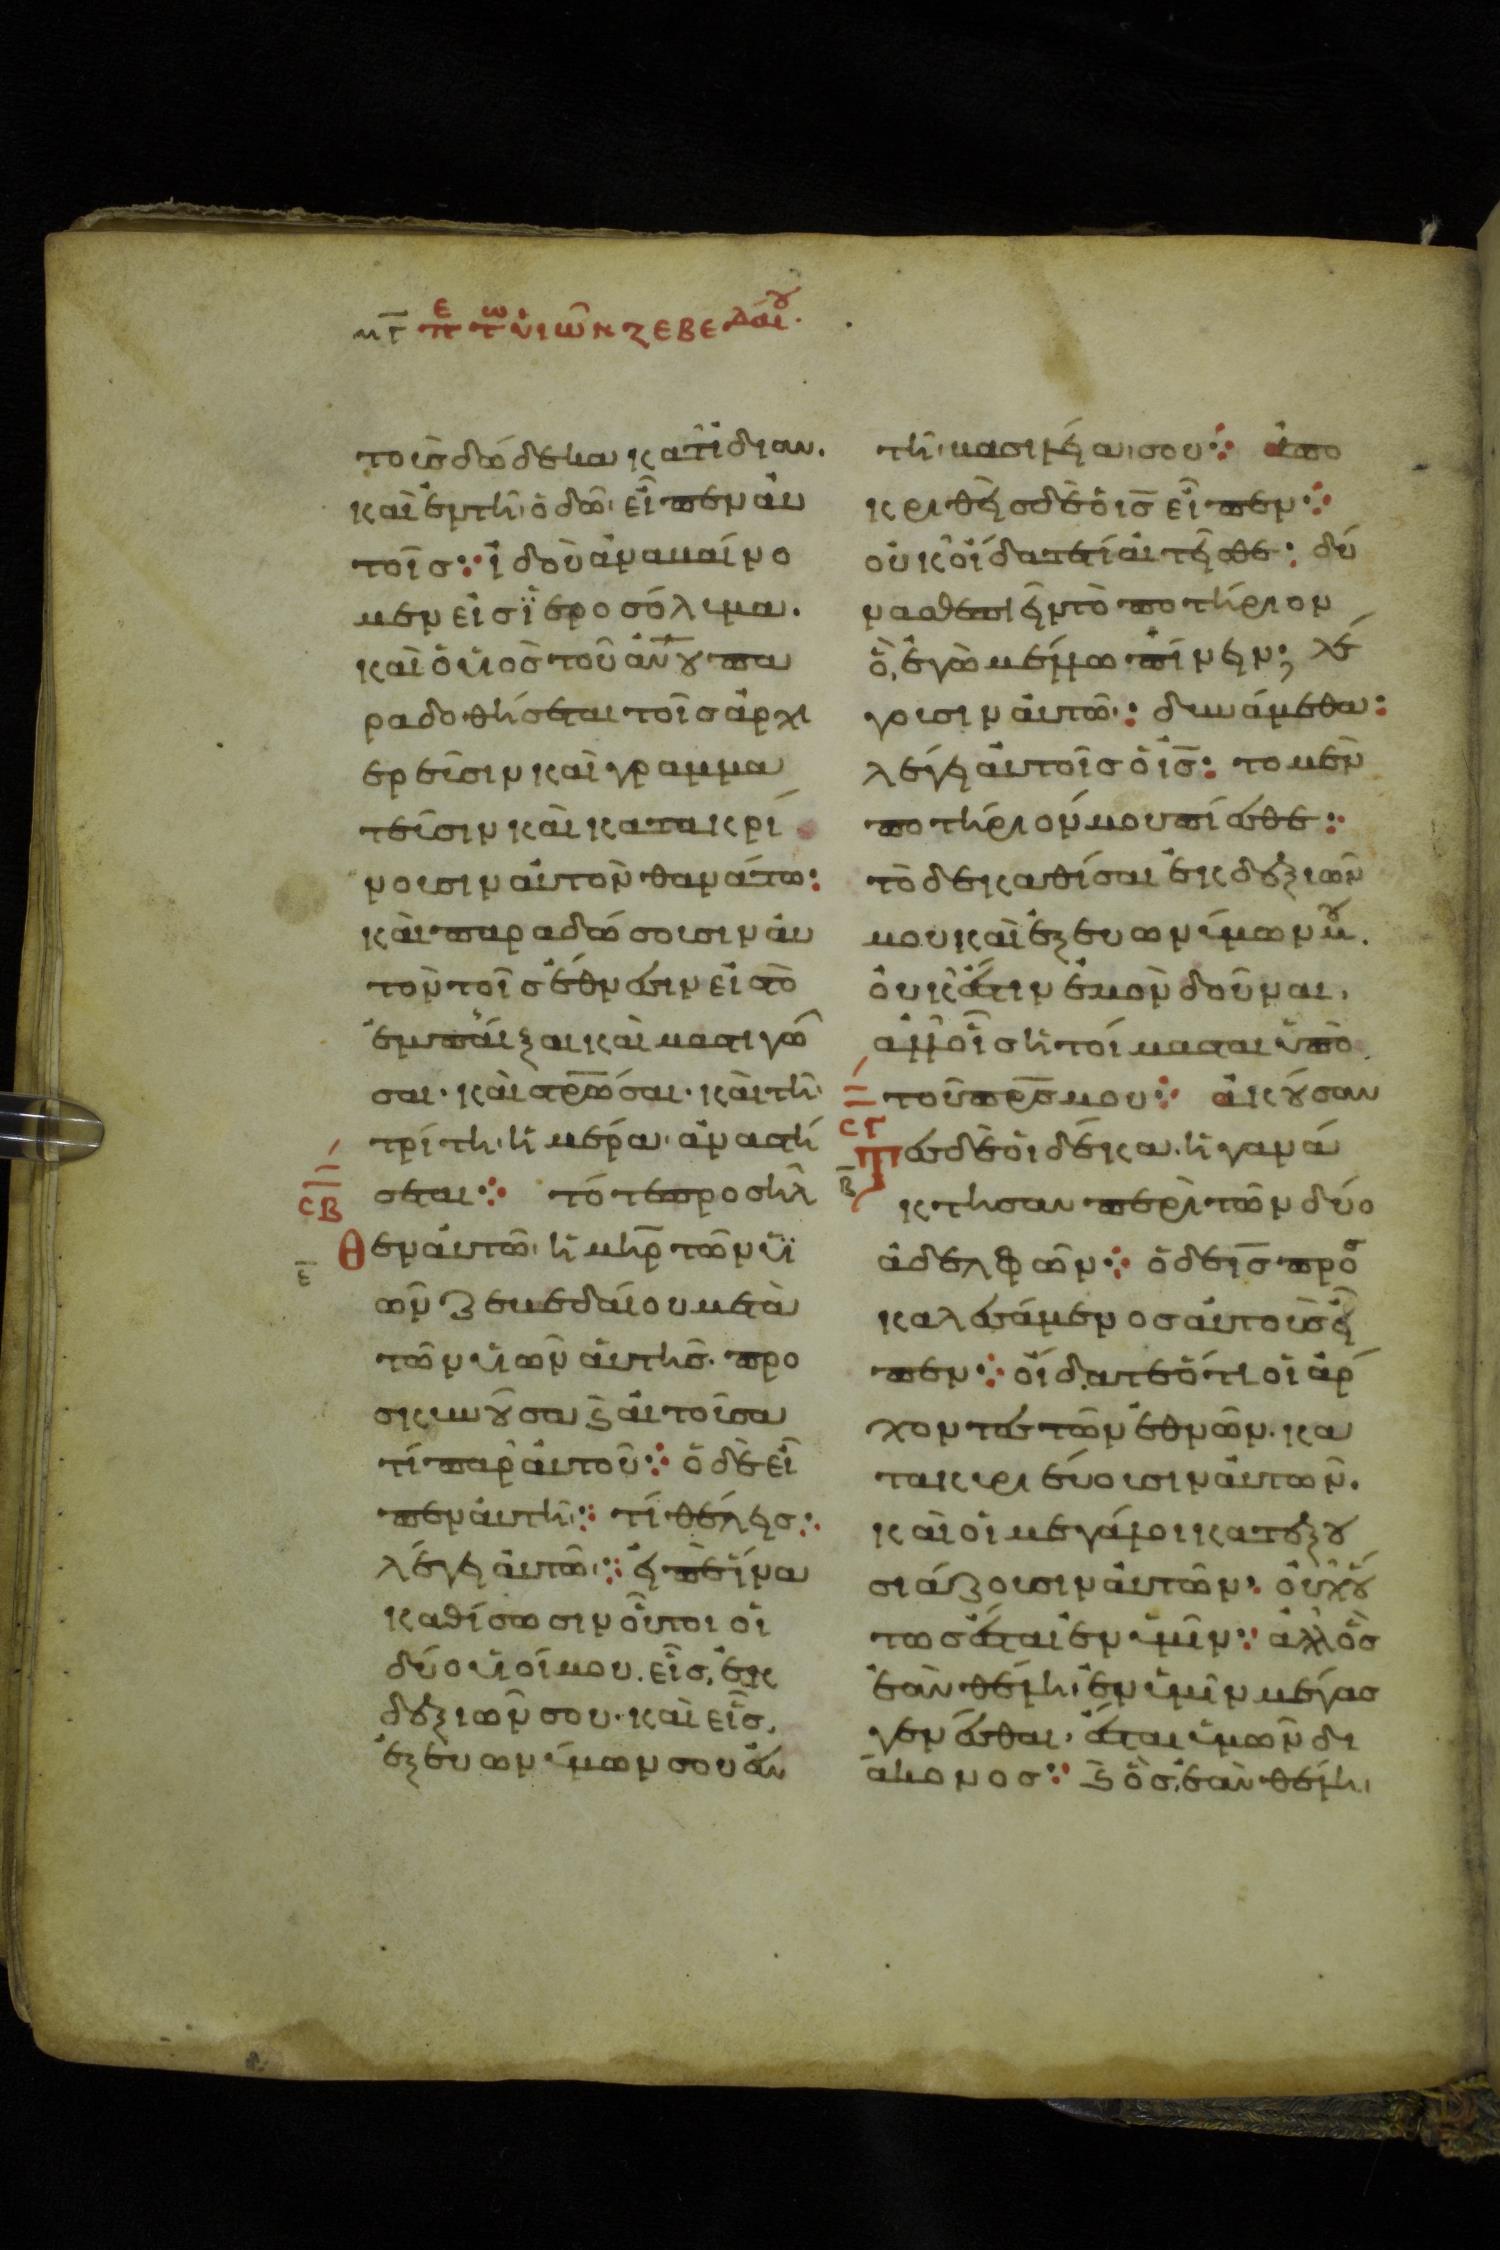 μγ̅ πε τω υἱῶν ζεβεδαίου.
τοὺσ δώδεκα κατϊδίαν.
καὶ ἐν τῆ ὁδῶ· εἶπεν αὐ
τοῖσ: ἰδοὺ ἀναβαίνο
μεν εἰσ ϊεροσόλυμα.
καὶ ὁ υἱὸσ τοῦ αν̅ου πα
ραδοθήσεται τοῖσ ἀρχι
ερεῦσιν καὶ γραμμα
τεῦσιν καὶ κατακρί
νουσιν αὐτὸν θανάτω:
καὶ παραδώσουσιν αὐ
τὸν τοῖσ ἔθνεσιν εἰσ τὸ
ἐμπαῖξαι καὶ μαστιγῶ
σαι· καὶ στρω̅σαι· καὶ τῆ
τρίτη ἡμέρα ἀναστή
σεται: τότε προσῆλ
σβ
θεν αὐτῶ ἡ μη̅ρ τῶν υἱ
ε̅
ῶν ζεβεδαίου μετὰ
τῶν υἱῶν αὐτῆσ· προ
σκυνοῦσα ϗ αἰτοῦσα
τί παρ αὐτοῦ: ὁ δὲ εἶ
πεν αὐτῆ: τί θέλεισ:
λέγει αὐτῶ: εἰπὲ ἵνα
καθίσωσιν οὗτοι οἱ
δύο υἱοί μου. εἷσ, ἐκ
δεξιῶν σου· καὶ εἷσ,
ἐξ εὐωνύμων σου ἐν
τῆ βασιλεία σου: ἀπο
κριθεὶσ δὲ ὁ ισ̅ εἶπεν:
οὐκ οἴδατε τί αἰτεῖσθε: δύ
νασθε πιεῖν τὸ ποτήριον
ὃ, ἐγὼ μέλλω πίνειν; λέ
γουσιν αὐτῶ: δυνάμεθα:
λέγει αὐτοῖσ ὁ ισ̅: το μὲν
ποτήριόν μου πίεσθε:
τὸ δε καθίσαι ἐκ δεξιῶν
μου καὶ ἐξ ευωνύμων μου.
οὐκ ἔστιν ἐμὸν δοῦναι.
ἀλλ οἷσ ἡτοίμασται ὑπὸ
τοῦ πρ̅σ μου: ἀκούσαν
σγ
τεσ δὲ οἱ δέκα. ἠγανά
β̅
κτησαν περὶ τῶν δύο
ἀδελφῶν: ὁ δε ισ̅ προσ
καλεσάμενοσ αὐτοὺσ εἶ
πεν: οἴδατε ὅτι οἱ ἄρ
χοντεσ τῶν ἐθνῶν. κα
τακυριεύουσιν αὐτῶν.
καὶ οἱ μεγάλοι κατεξου
σιάζουσιν αὐτῶν: οὐχ οὕ
τωσ ἔσται ἐν ὑμῖν: ἀλλ ὃσ
ἐὰν θέλη ἐν ὑμῖν μέγασ
γενέσθαι· ἔσται ὑμῶν δι
άκονοσ: ϗ ὃσ, ἐὰν θέλη